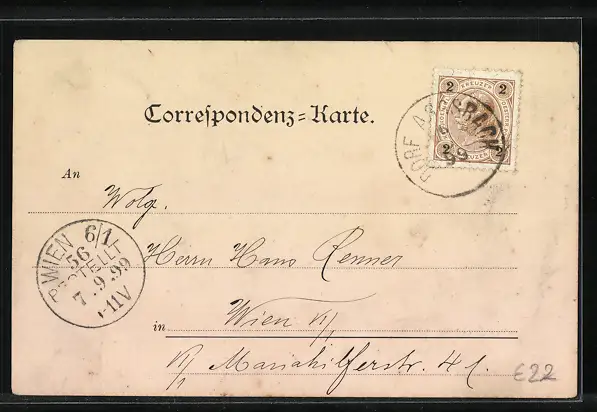 Correspondenz-Karte.
2 KREUZER 2
DORF ASCHBACH
99
2 KREUZER 2
An
Wolg.
WIEN 6/1
56
BESTELLT
7.9.99
Herrn Hans Renner
in Wien
Mariahilferstr. 41.
€22